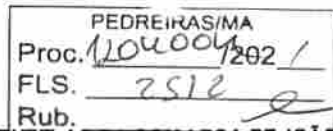 PEDREIRAS/MA
Proc. 1104004/202 1
FLS. 2512
Rub.